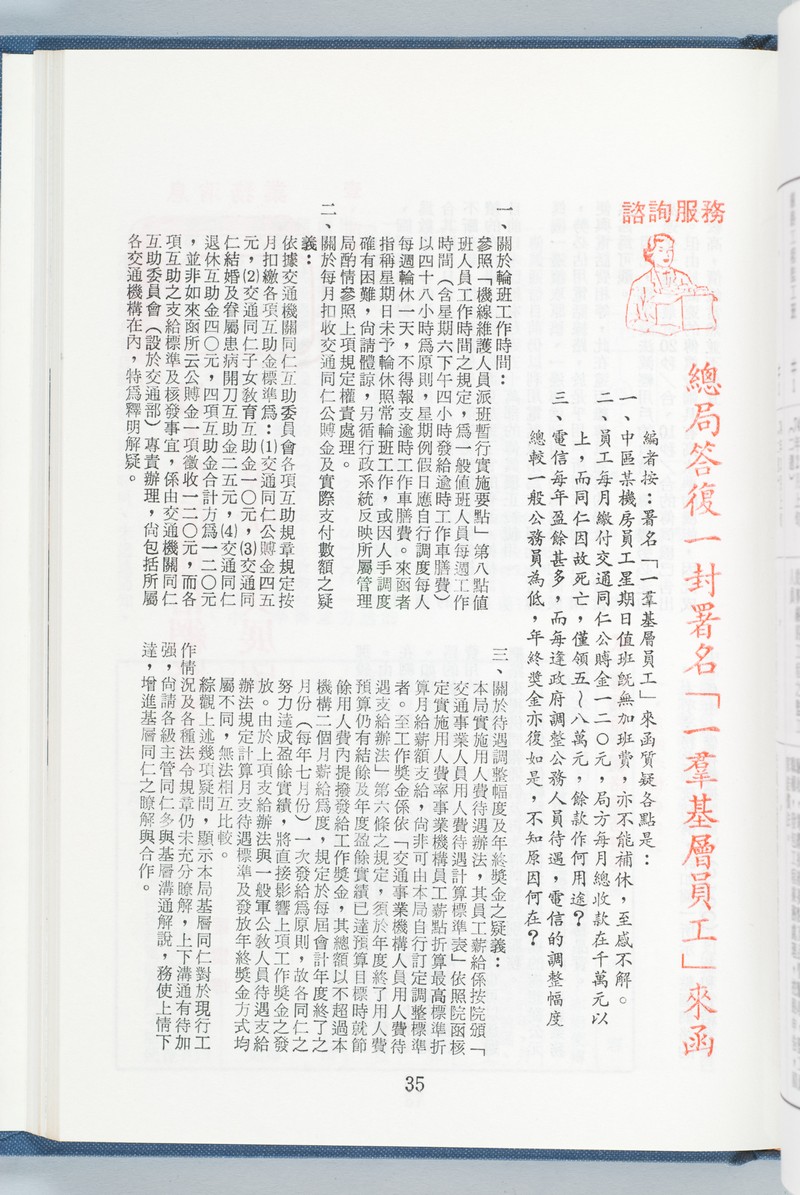 諮詢服務
總局答復一封署名「一羣基層員工」來函
編者按：署名「一羣基層員工」來函質疑各點是：
一、中區某機房員工星期日值班旣無加班費，亦不能補休，至感不解。
二、員工每月繳付交通同仁公賻金一二○元，局方每月總收款在千萬元以
上，而同仁因故死亡，僅領五～八萬元，餘款作何用途？
三、電信每年盈餘甚多，而每逢政府調整公務人員待遇，電信的調整幅度
總較一般公務員為低，年終獎金亦復如是，不知原因何在？
一、關於輪班工作時間：
參照「機線維護人員派班暫行實施要點」第八點值
班人員工作時間之規定，爲一般值班人員每週工作
時間（含星期六下午四小時發給逾時工作車膳費）
以四十八小時爲原則，星期例假日應自行調度每人
每週輪休一天，不得報支逾時工作車膳費。來函者
指稱星期日未予輪休照常輪班工作，或因人手調度
確有困難，尙請體諒，另循行政系統反映所屬管理
局酌情參照上項規定權責處理。
二、關於每月扣收交通同仁公賻金及實際支付數額之疑
義：
依據交通機關同仁互助委員會各項互助規章規定按
月扣繳各項互助金標準爲：⑴交通同仁公賻金四五
元，⑵交通同仁子女敎育互助金一○元，⑶交通同
仁結婚及眷屬患病開刀互助金二五元，⑷交通同仁
退休互助金四○元，四項互助金合計方爲一二○元
，並非如來函所云公賻金一項徵收一二○元，而各
項互助之支給標準及核發事宜，係由交通機關同仁
互助委員會（設於交通部）專責辦理，尙包括所屬
各交通機構在內，特爲釋明解疑。
三、關於待遇調整幅度及年終獎金之疑義：
本局實施用人費待遇辦法，其員工薪給係按院頒「
交通事業人員用人費待遇計算標準表」依照院函核
定實施用人費率事業機構員工薪點折算最高標準折
算月給薪額支給，尙非可由本局自行訂定調整標準
者。至工作獎金係依「交通事業機構人員用人費待
遇支給辦法」第六條之規定，須於年度終了用人費
預算仍有結餘及年度盈餘實績已達預算目標時就節
餘用人費內提撥發給工作獎金，其總額以不超過本
機構二個月薪給爲度，規定於每屆會計年度終了之
月份（每年七月份）一次發給爲原則，故各同仁之
努力達成盈餘實績，將直接影響上項工作獎金之發
放。由於上項支給辦法與一般軍公敎人員待遇支給
辦法規定計算月支待遇標準及發放年終獎金方式均
屬不同，無法相互比較。
綜觀上述幾項疑問，顯示本局基層同仁對於現行工
作情況及各種法令規章仍未充分瞭解，上下溝通有待加
强，尙請各級主管同仁多與基層溝通解說，務使上情下
達，增進基層同仁之瞭解與合作。
35